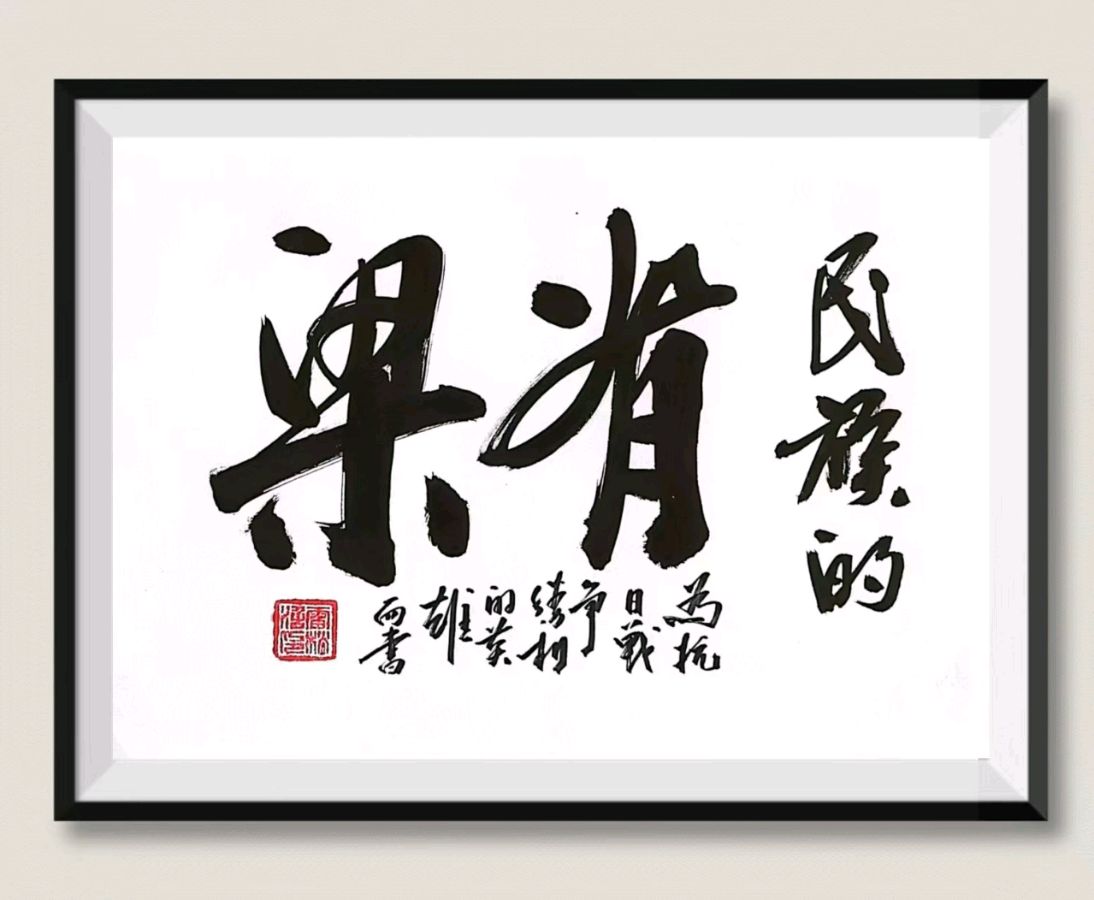 民族的
脊梁
為抗
日戰
争
的英
雄
而書